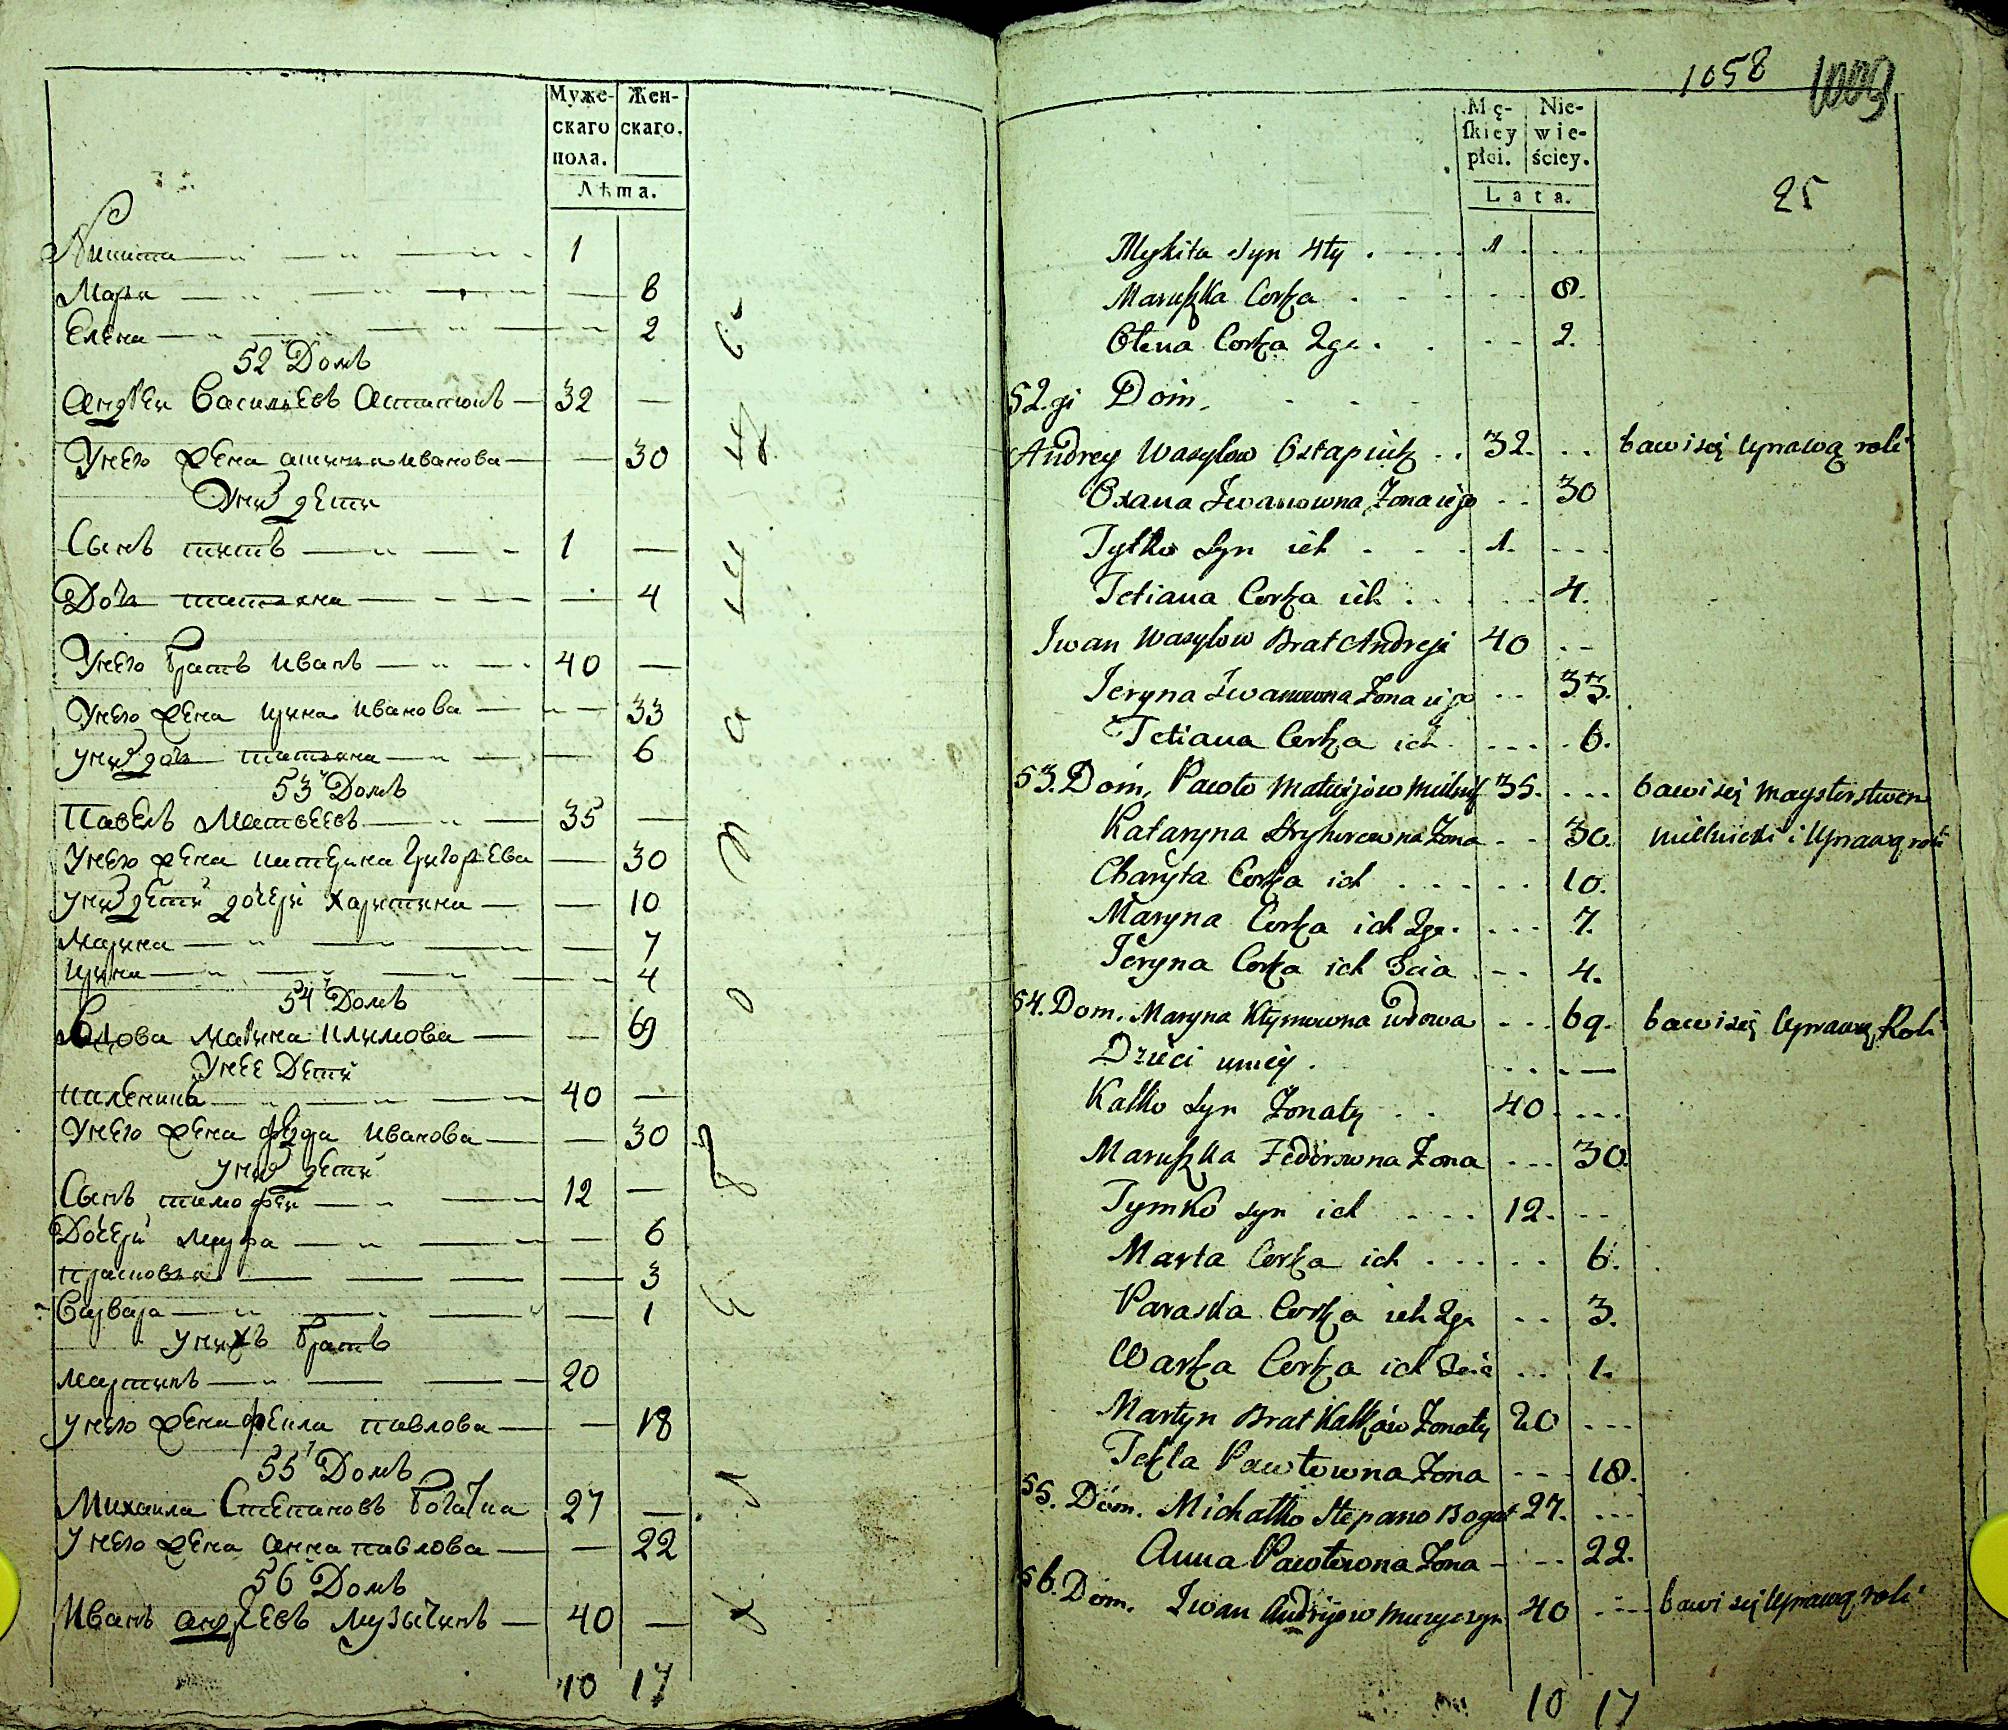 Муже-
скаго
пола.
Жен-
скаго.
Лѣта.
Никита 1
Маря 8
Елена 2
52 Домъ
Андрей Васильевъ Астапюкъ 32
Унего жена Иванова 30
Унихъ дети
Сынъ титъ 1
Дочь татяна 4
Унего братъ Иванъ 40
Унего жена Ирина Иванова 33
унихъ дочь татяна 6
53 Домъ
Павелъ Матвеевъ 35
Унего жена катерина Григорьева 30
унихъ дети дочери Харитина 10
Марина 7
Ирина 4
54 Домъ
Вдова Марина Климова 69
Унее Дети
каленикъ 40
Унего жена Иванова 30
унихъ дети
Сынъ тимофей 12
Дочери Марфа 6
прасковья 3
Варвара 1
унихъ братъ
мартинъ 20
унего жена фекла павлова 18
55 Домъ
Михаила Степановъ 27
унего жена анна павлова 22
56 Домъ
Иванъ андреевъ музычинъ 40
10 17
1058
1009
25
Mę-
skiey
płci.
Nie-
wie-
ściey.
Lata.
Mykita syn 4ty 1
Maruszka Corka 8.
Ołena Corka 2ga. 2.
52.gi Dom.
Andrey Wasylow Ostapiuk 32. bawi się Uprawą roli
Oxana Iwanowna Żona iego 30
Tytko Syn ich 1.
Tetiana Corka ich 4.
Iwan Wasylow Brat Andreja 40
Jeryna Iwanowna Żona iego 33.
Tetiana Corka ich 6.
53. Dom. Pawło Matwijow Mielnik 35. bawi się maysterstwem
Kataryna Hryhorowna Żona 30. mielnicki i Uprawą roli
Charyta Corka ich 10.
Maryna Corka ich 2ga. 7.
Jeryna Corka ich 3cia 4.
54. Dom. Maryna Kłymowna wdowa 69. bawi się Uprawą Roli
Dzieci uniey.
Kałko Syn Żonaty 40.
Maruszka Fedorowna Żona 30.
Tymko syn ich 12.
Marta Corka ich 6.
Paraska Corka ich 2ga 3.
Warka Corka ich 3cia 1.
Martyn Brat Kałkow Żonaty 20
Tekla Pawłowna Żona 18.
55. Dom. Michałko Stepano Bogat 27.
Anna Pawłowna Żona 22.
56. Dom. Iwan Andrijow Muzyczyn 40 bawi się Uprawą roli
10 17